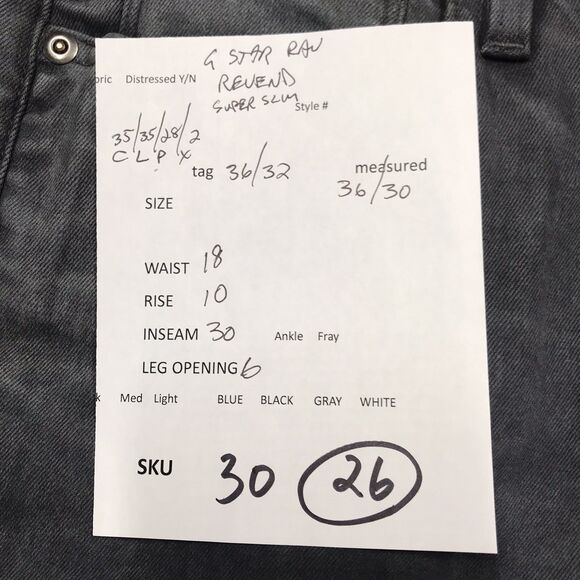 G STAR RAW
REVEND
SUPER SLIM
Distressed Y/N
Style #
35/35/28/2
C L P X
tag 36/32
measured
36/30
SIZE
WAIST 18
RISE 10
INSEAM 30 Ankle Fray
LEG OPENING 6
Med Light BLUE BLACK GRAY WHITE
SKU 30 26